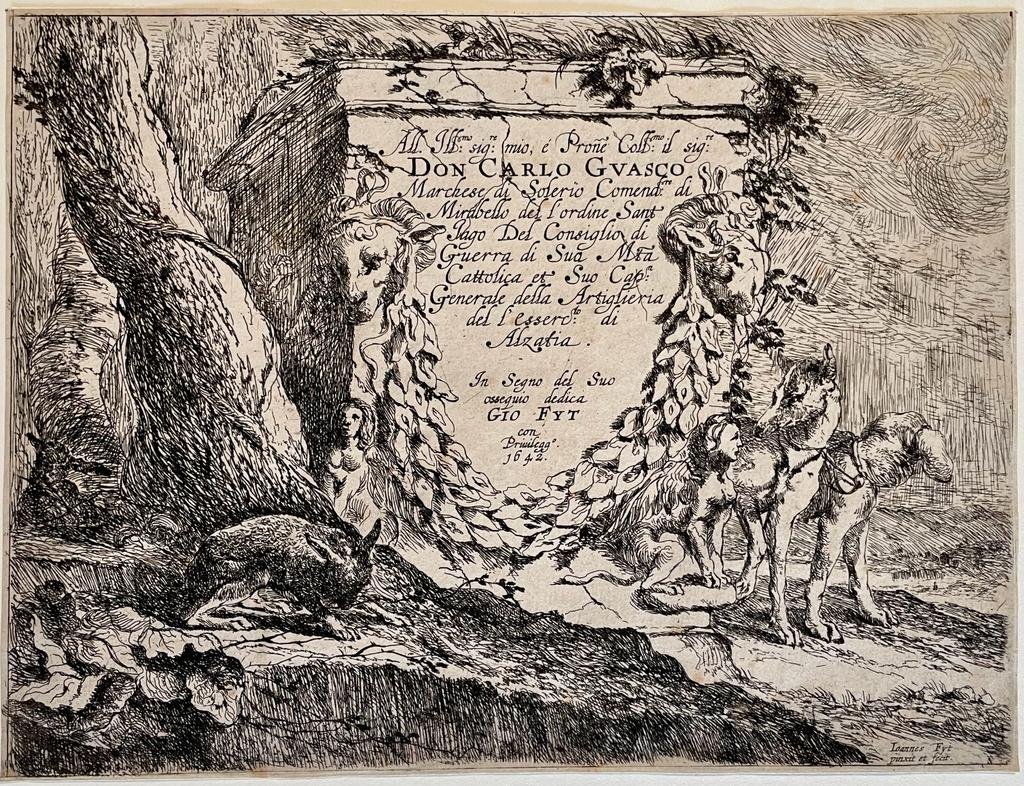 All Ill:mo sig:re mio, é Proñe Coll:mo il sig:re
DON CARLO GVASCO
Marchese di Solerio Comend:re di
Mirabello del l'ordine Sant
Iago Del Consiglio di
Guerra di Sua Mta
Cattolica et Suo Cap:
Generale della Artiglieria
del l'esserc:to di
Alzatia.
In Segno del Suo
ossequio dedica
GIO FYT
con
Priuilegg:o
1642.
Ioannes Fyt
pinxit et fecit.